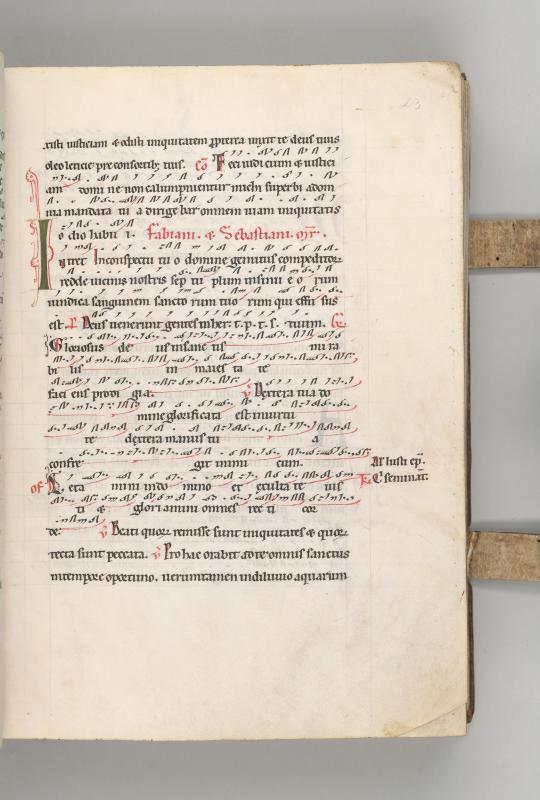 23
xisti iusticiam & odisti iniquitatem propterea unxit te deus tuus
oleo leticie pre consortib; tuis. Co Feci iudicium & iustici
am domi ne non calumpnientur michi superbi ad om
nia mandata tu a dirige bar omnem uiam iniquitatis
o dio habu i. Fabiani. & Sebastiani. mr.
Intret In conspectu tu o domine gemitus compeditor
redde uicinis nostris sep tu plum in sinu e o rum
uindica sanguinem sancto rum tuo rum qui effu sus
est. P Deus uenerunt gentes in her. t. p. t. s. tuum. Gr
Gloriosus de us in sanc tis mi ra
bi lis in maies ta te
faci ens prodi gia. V Dextera tua do
mine glorificata est in uirtu
te dextera manus tu a
confre git inimi cum. Al Iusti ep.
of Leta mini in do mino et exulta te ius Tr Q seminat.
ti & gloriamini omnes rec ti cor
de. V Beati quor remisse sunt iniquitates & quor
tecta sunt peccata. V Pro hac orabit ad te omnis sanctus
in tempore oportuno. uerumtamen in diluuio aquarum